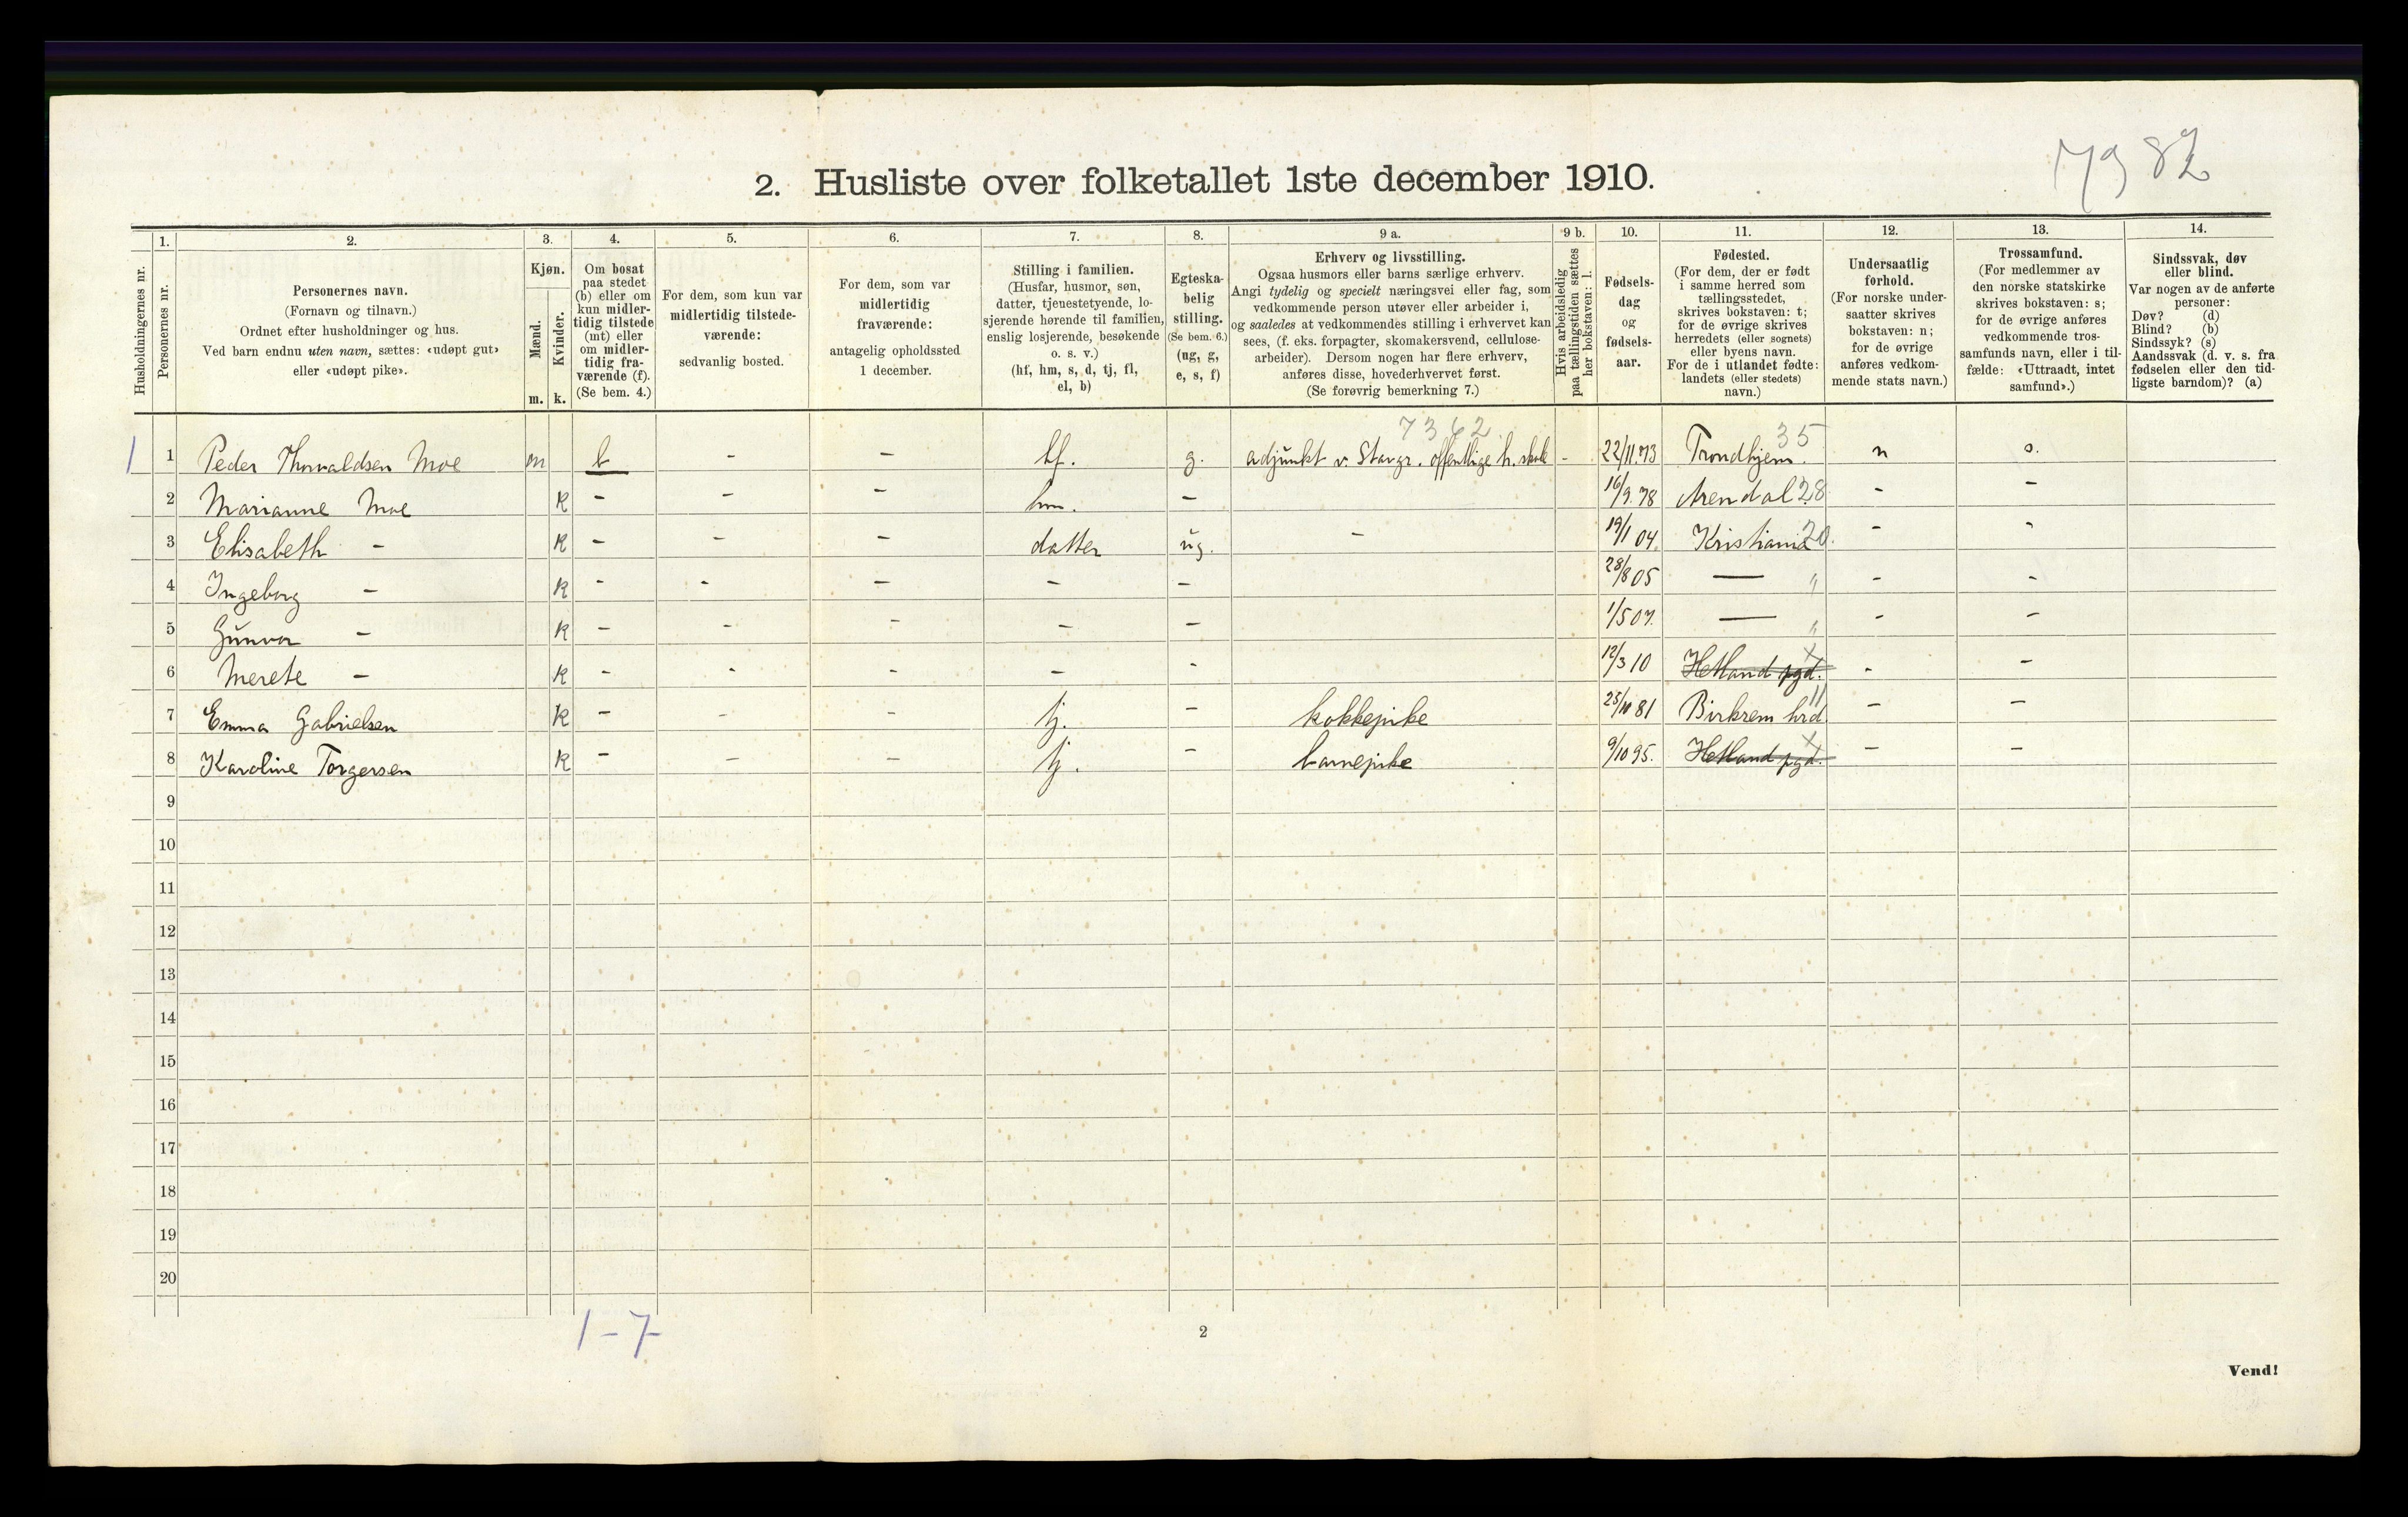 7982
2. Husliste over folketallet 1ste december 1910.
Husholdningernes nr.
1.
Personernes nr.
2.
Personernes navn.
(Fornavn og tilnavn.)
Ordnet efter husholdninger og hus.
Ved barn endnu uten navn, sættes: «udøpt gut»
eller «udøpt pike».
3.
Kjøn.
Mænd.
Kvinder.
m. k.
4.
Om bosat
paa stedet
(b) eller om
kun midler-
tidig tilstede
(mt) eller
om midler-
tidig fra-
værende (f).
(Se bem. 4.)
5.
For dem, som kun var
midlertidig tilstede-
værende:
sedvanlig bosted.
6.
For dem, som var
midlertidig
fraværende:
antagelig opholdssted
1 december.
7.
Stilling i familien.
(Husfar, husmor, søn,
datter, tjenestetyende, lo-
sjerende hørende til familien,
enslig losjerende, besøkende
o. s. v.)
(hf, hm, s, d, tj, fl,
el, b)
8.
Egteska-
belig
stilling.
(Se bem. 6.)
(ug, g,
e, s, f)
9 a.
Erhverv og livsstilling.
Ogsaa husmors eller barns særlige erhverv.
Angi tydelig og specielt næringsvei eller fag, som
vedkommende person utøver eller arbeider i,
og saaledes at vedkommendes stilling i erhvervet kan
sees, (f. eks. forpagter, skomakersvend, cellulose-
arbeider). Dersom nogen har flere erhverv,
anføres disse, hovederhvervet først.
(Se forøvrig bemerkning 7.)
9 b.
Hvis arbeidsledig
paa tællingstiden sættes
her bokstaven: l.
10.
Fødsels-
dag
og
fødsels-
aar.
11.
Fødested.
(For dem, der er født
i samme herred som
tællingsstedet,
skrives bokstaven: t;
for de øvrige skrives
herredets (eller sognets)
eller byens navn.
For de i utlandet fødte:
landets (eller stedets)
navn.)
12.
Undersaatlig
forhold.
(For norske under-
saatter skrives
bokstaven: n;
for de øvrige
anføres vedkom-
mende stats navn.)
13.
Trossamfund.
(For medlemmer av
den norske statskirke
skrives bokstaven: s;
for de øvrige anføres
vedkommende tros-
samfunds navn, eller i til-
fælde: «Uttraadt, intet
samfund».)
14.
Sindssvak, døv
eller blind.
Var nogen av de anførte
personer:
Døv? (d)
Blind? (b)
Sindssyk? (s)
Aandssvak (d. v. s. fra
fødselen eller den tid-
ligste barndom)? (a)
7362 35
1 1 Peder Thorvaldsen Moe m b - - hf. g. adjunkt v. Stavgr. offentlige h. skole - 22/11.73 Trondhjem. n s.
2 Marianne Moe k - - - hm. - 16/9.78 Arendal 28 - -
3 Elisabeth - k - - - datter ug. - 19/1 04. Kristiania 20. - -
4 Ingeborg - k - - - - - 28/8 05 — " - -
5 Gunvor - k - - - - - 1/5 07. — " - -
6 Merete - k - - - - - 12/3 10 Hetland pgd. x - -
7 Emma Gabrielsen k - - - tj. - kokkepike 25/10 81 Birkrem hrd. 11 - -
8 Karoline Torgersen k - - - tj. - barnepike 9/10 95. Hetland pgd. x - -
9
10
11
12
13
14
15
16
17
18
19
20
1-7
2
Vend!